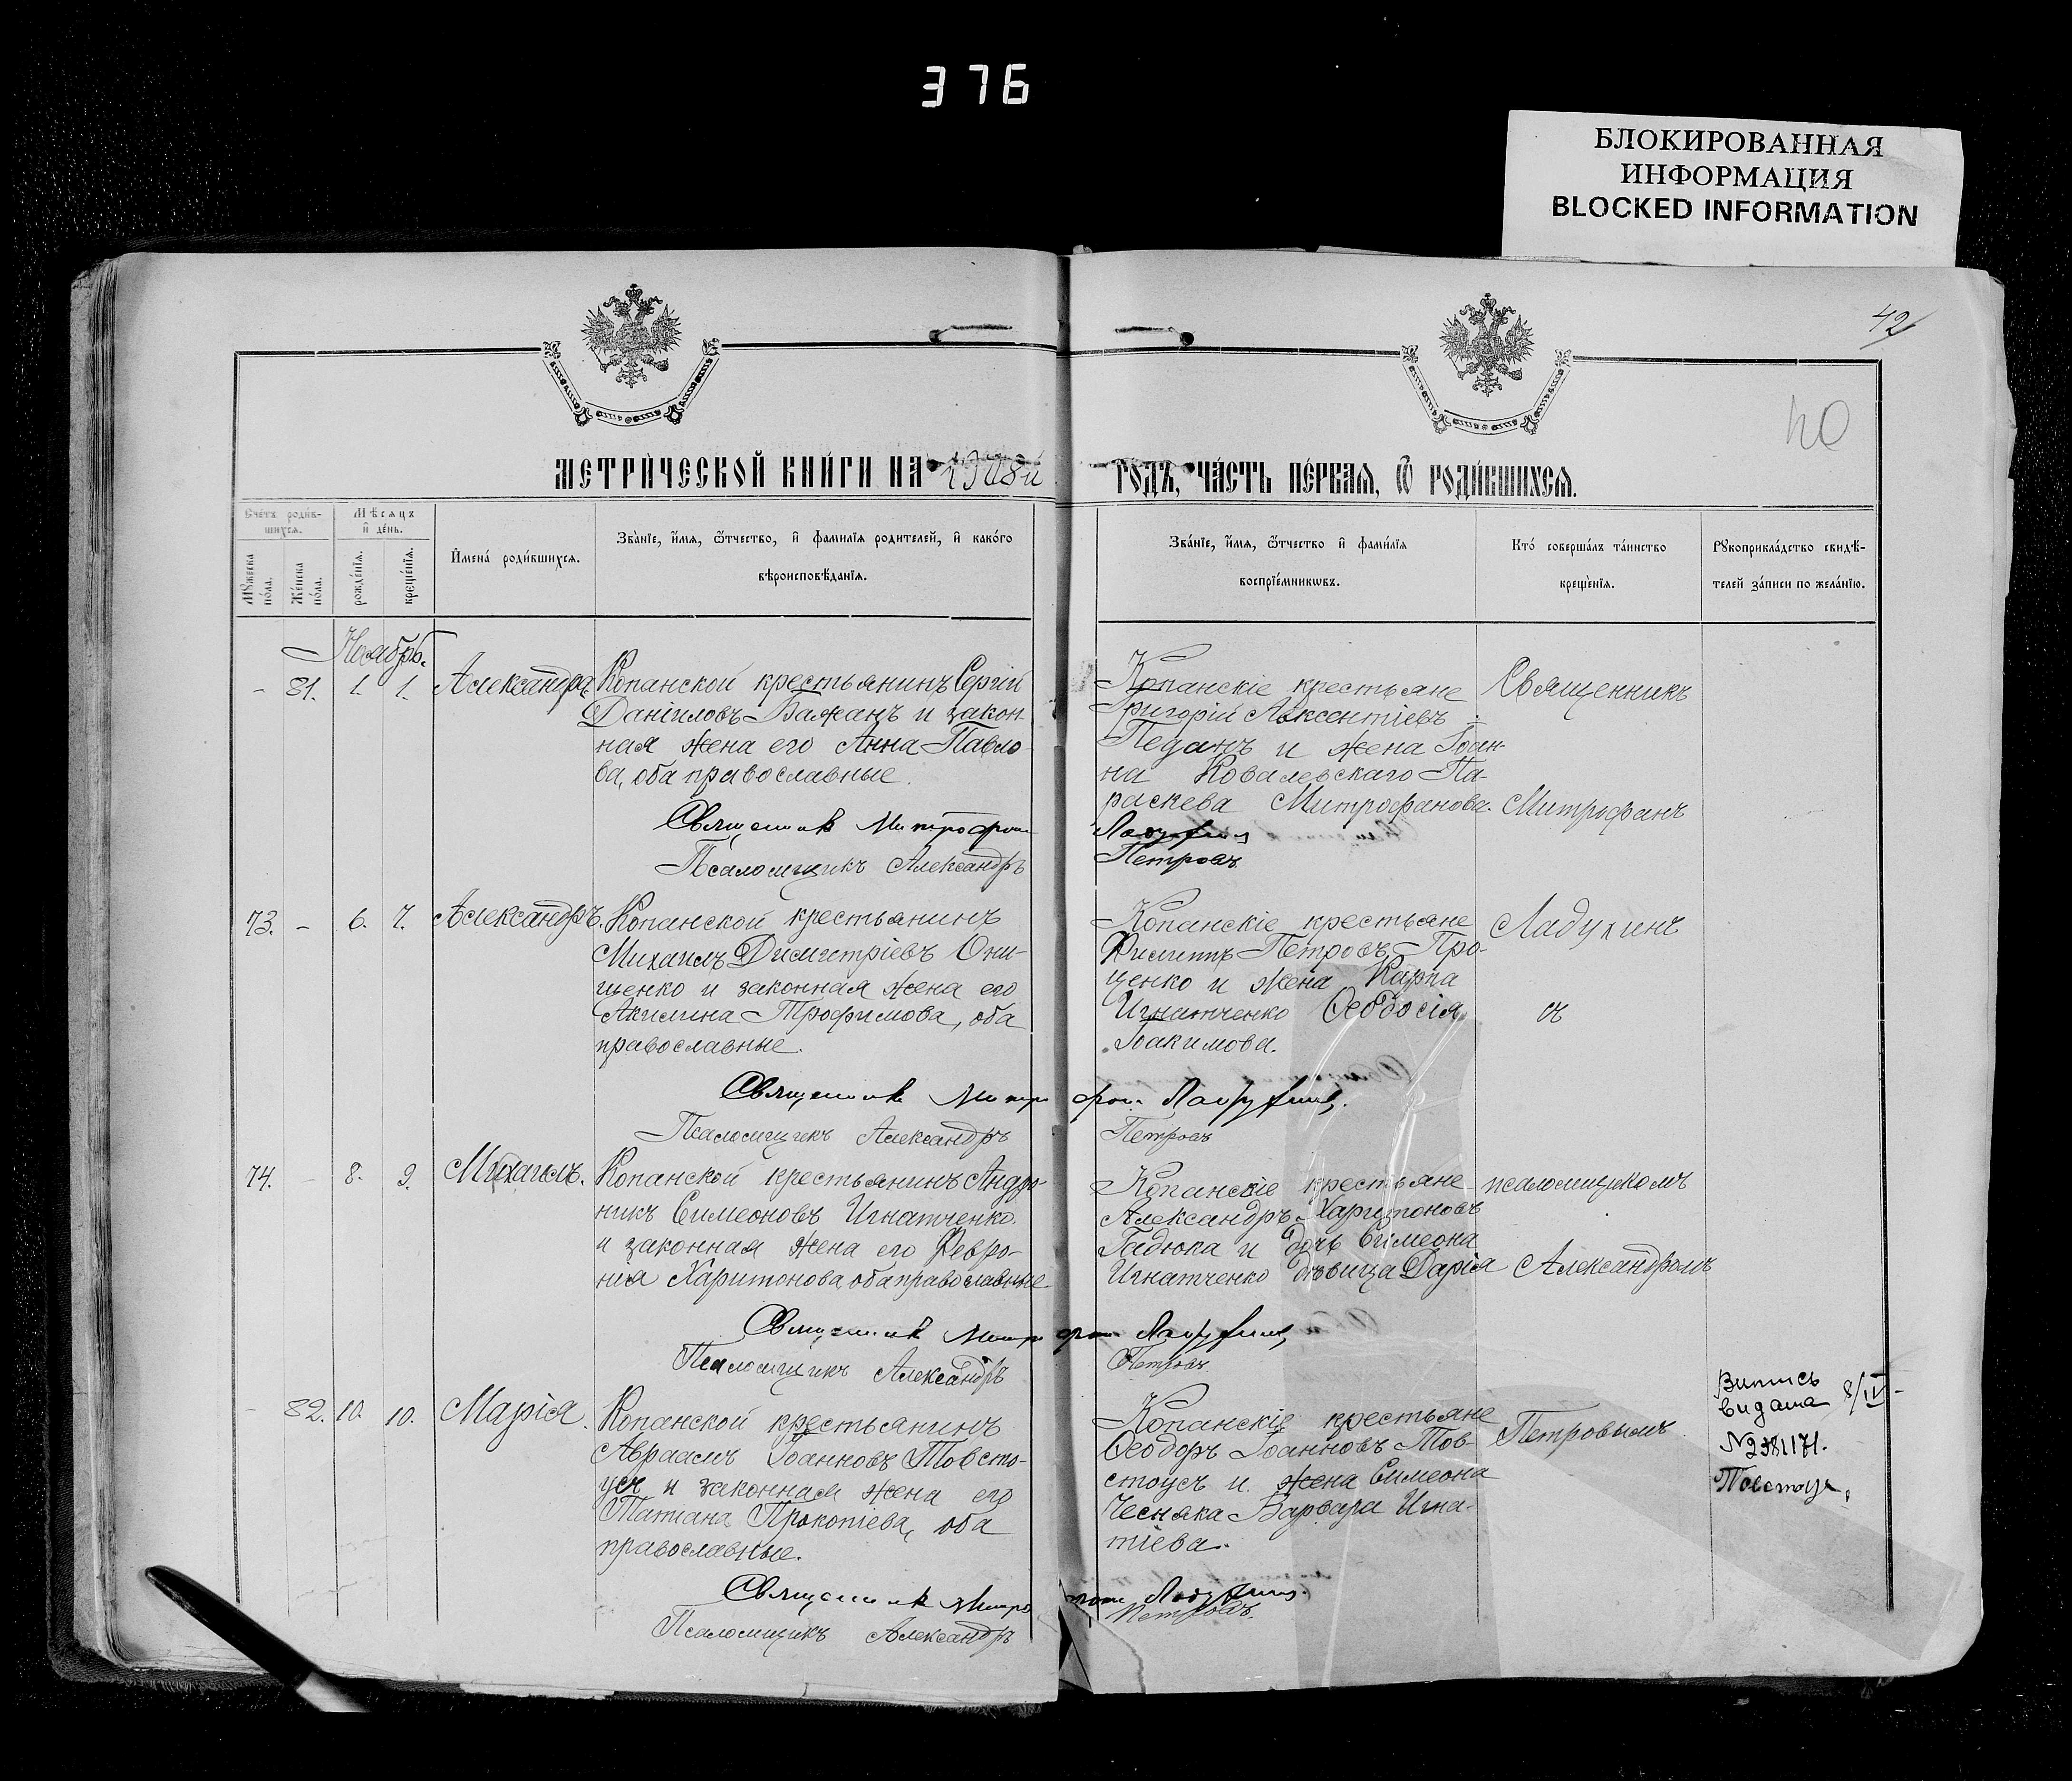 376
БЛОКИРОВАННАЯ
ИНФОРМАЦИЯ
BLOCKED INFORMATION
42
40
МЕТРИ́ЧЕСКОЙ КНИ́ГИ НА 1908й
ГОДЪ, ЧА́СТЬ ПЕ́РВАѦ, Ѿ РОДИ́ВШИХСѦ.
Сче́тъ роди́в-
шихсѧ.
Мѣ́сѧцъ
и҆ де́нь.
Мꙋ́жеска
по́ла.
Же́нска
по́ла.
рожде́нїѧ.
креще́нїѧ.
И҆мена̀ роди́вшихсѧ.
Зва́нїе, и҆́мѧ, ѻ҆́тчество, и҆ фами́лїѧ роди́телей, и҆ како́гѡ
вѣроисповѣ́данїѧ.
Зва́нїе, и҆́мѧ, ѻ҆́тчество и҆ фами́лїѧ
воспрїе́мникѡвъ.
Кто̀ соверша́лъ та́инство
креще́нїѧ.
Рꙋкоприкла́дство свидѣ́-
телей за́писи по жела́нїю.
Ноябрь.
- 81. 1. 1. Александра
Копанской крестьянинъ Сергій
Даніиловъ Важанъ и закон
ная жена его Анна Павло-
ва, оба православные.
Священникъ Митрофан
Псаломщикъ Александръ
Копанскіе крестьяне
Григорій Авксентіевъ
Педанъ и жена Іоан-
на Ковалевскаго Па-
раскева Митрофанова.
Ладухин
Петровъ
Священникъ
Митрофанъ
73. - 6. 7. Александръ.
Копанской крестьянинъ
Михаилъ Димитріевъ Они-
щенко и законная жена его
Акилина Трофимова, оба
православные.
Священникъ Митрофан Ладухин.
Псаломщикъ Александръ Петровъ
Копанскіе крестьяне
Филиппъ Петровъ Про-
ценко и жена Карпа
Игнатченко Ѳеодосія
Іоакимова.
Ладухинъ
съ
74. - 8. 9. Михаилъ.
Копанской крестьянинъ Андро-
никъ Симеоновъ Игнатченко
и законная жена его Февро-
нія Харитонова, оба православные
Священникъ Митрофан Ладухин
Псаломщикъ Александръ Петровъ
Копанскіе крестьяне
Александръ Харитоновъ
Гадюка и дочь Симеона
Игнатченко дѣвица Дарія
псаломщикомъ
Александромъ
- 82. 10. 10. Марія.
Копанской крестьянинъ
Авраамъ Іоанновъ Товсто-
усъ и законная жена его
Татіана Прокопіева, оба
православные.
Священникъ Митрофан Ладухин.
Псаломщикъ Александръ Петровъ.
Копанскіе крестьяне
Ѳеодоръ Іоанновъ Тов-
стоусъ и жена Симеона
Чесняка Варвара Игна-
тіева.
Петровымъ
Випись
видана 8/IV-
№2381171.